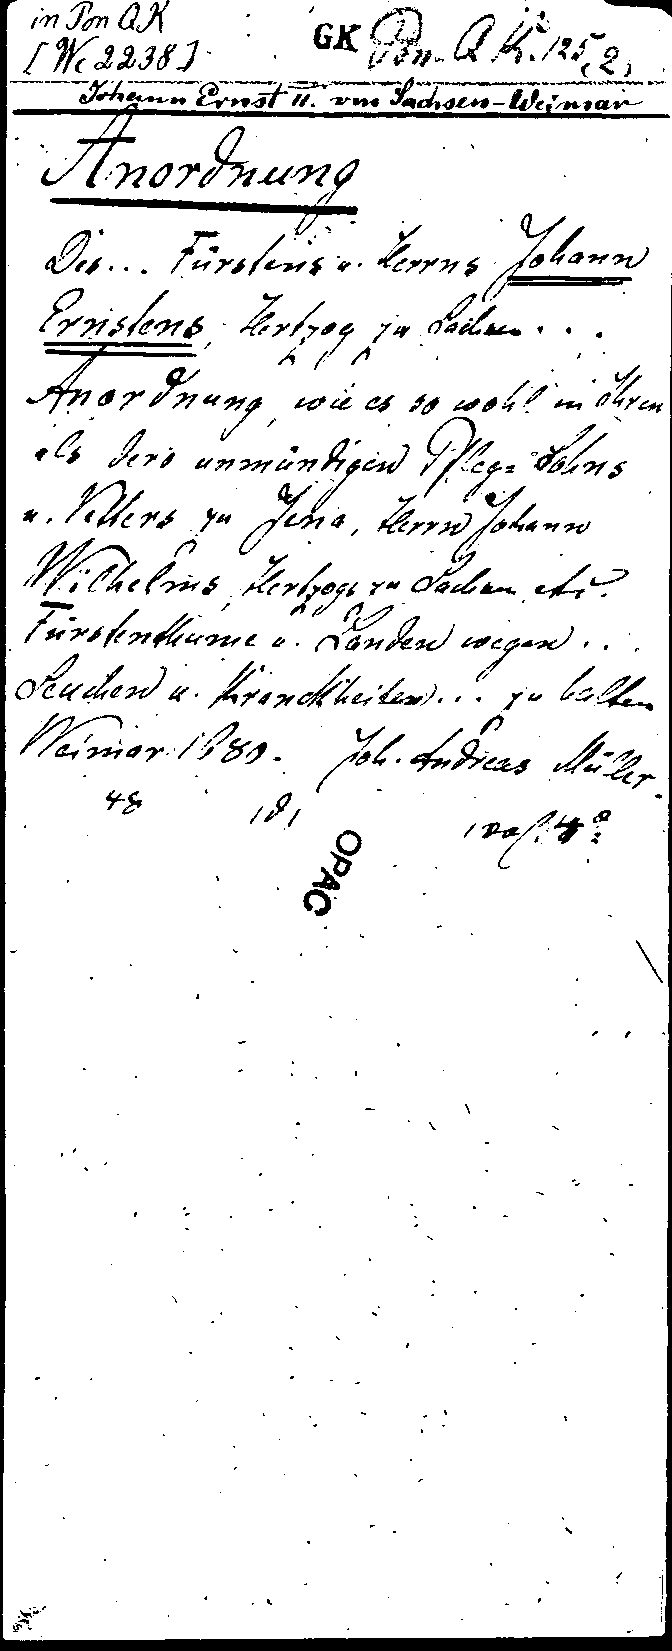 in Pon QK GK Pon. QK. 125, 2,
[Wc 2238]
Johann Ernst II. von Sachsen-Weimar
Anordnung
Des... Fürstens u. Herrns Johann
Ernstens, Hertzog zu Sachsen...
Anordnung, wie es so wohl in Ihren
als dero unmündigen Pfleg= Sohns
u. Vetters zu Jena, Herrn Johann
Wilhelms, Hertzogs zu Sachsen etc.
Fürstenthume u. Landen wegen...
Seuchen u. Kranckheiten... zu halten
Weimar 1680. Joh. Andreas Müller.
48 4°
OPAC